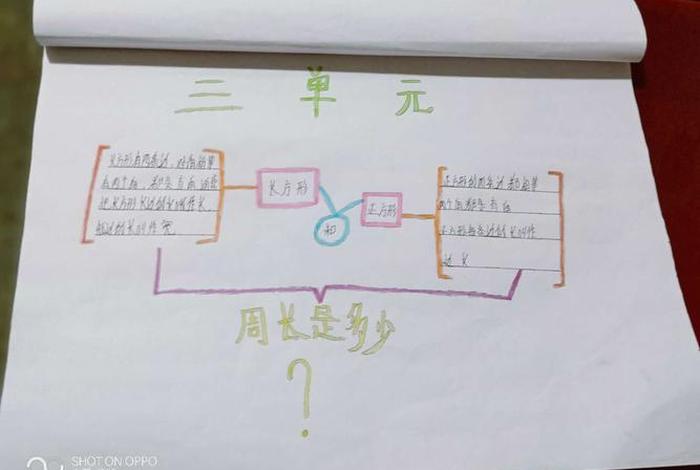 三 单 元
长方形有两条边,对角相等
有四个角,都是直角,通常
把长方形长边的长叫作长,
短边的长叫作宽
长方形
和
正方形
正方形的四条边都相等
四个角都是直角
正方形每条边的长叫作
边长
周长是多少
?
SHOT ON OPPO